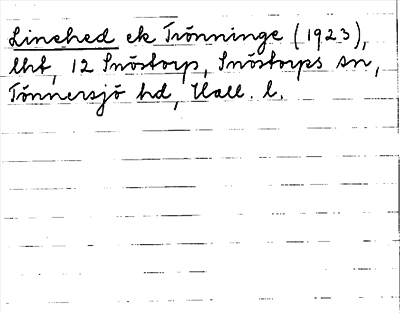 Linehed ek Trönninge (1923),
lht, 12 Snöstorp, Snöstorps sn,
Tönnersjö hd, Hall. l.